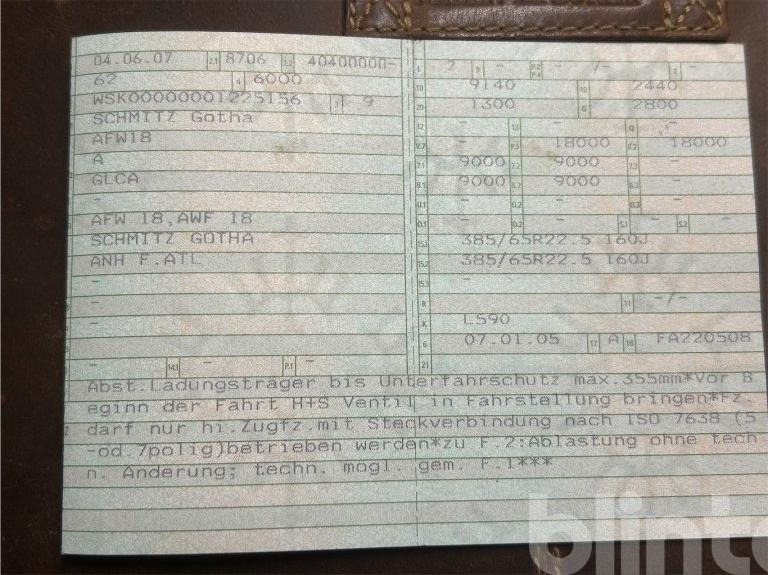 04.06.07 2.1 8706 2.2 40400000-
62 4 6000
WSK00000001225156 3 9
SCHMITZ Gotha
AFW18
A
GLCA
-
AFW 18,AWF 18
SCHMITZ GOTHA
ANH F.ATL
-
-
-
- 14.1 - P.1 -
L 2 9 - P.2 P.4 -/- T -
18 9140 19 2440
20 1300 G 2800
12 - 13 - Q -
V.7 - F.1 18000 F.2 18000
7.1 9000 7.2 9000 7.3 -
8.1 9000 8.2 9000 8.3 -
U.1 - U.2 - U.3 -
O.1 - O.2 - S.1 - S.2 -
15.1 385/65R22.5 160J
15.2 385/65R22.5 160J
15.3 -
R 11 -/-
K L590
6 07.01.05 17 A 16 FA220508
21
Abst.Ladungsträger bis Unterfahrschutz max.355mm*Vor B
eginn der Fahrt H+S Ventil in Fahrstellung bringen*Fz.
darf nur hi.Zugfz.mit Steckverbindung nach ISO 7638 (5
-od.7polig)betrieben werden*zu F.2:Ablastung ohne tech
n. Änderung; techn. mögl. gem. F.1***
blinto